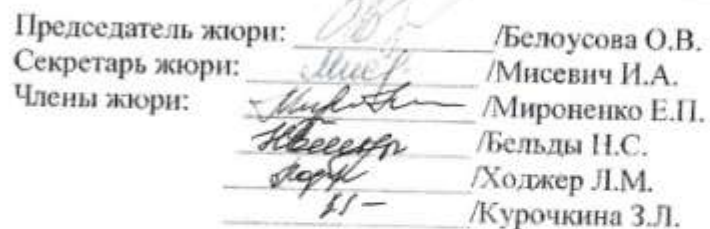 Председатель жюри: /Белоусова О.В.
Секретарь жюри: /Мисевич И.А.
Члены жюри: /Мироненко Е.П.
/Бельды Н.С.
/Ходжер Л.М.
/Курочкина З.Л.